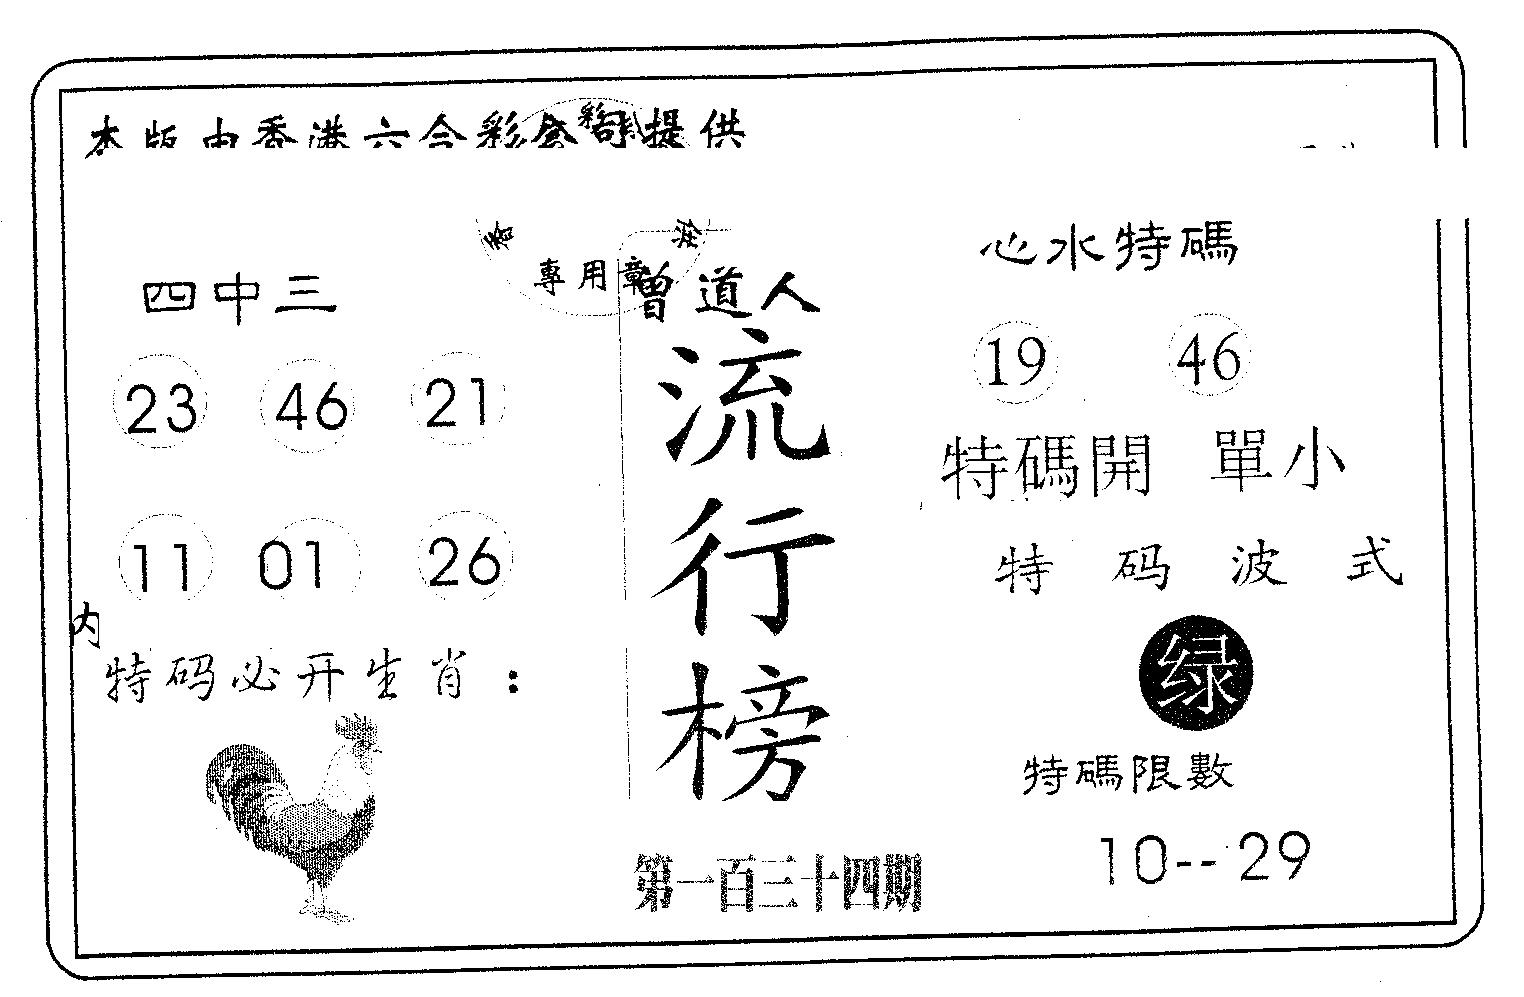 本版由香港六合彩公司提供
彩
香 供
專用章
四中三
23 46 21
11 01 26
内
特码必开生肖：
曾道人
流行榜
第一百三十四期
心水特碼
19 46
特碼開 單小
特码波式
绿
特碼限數
10--29